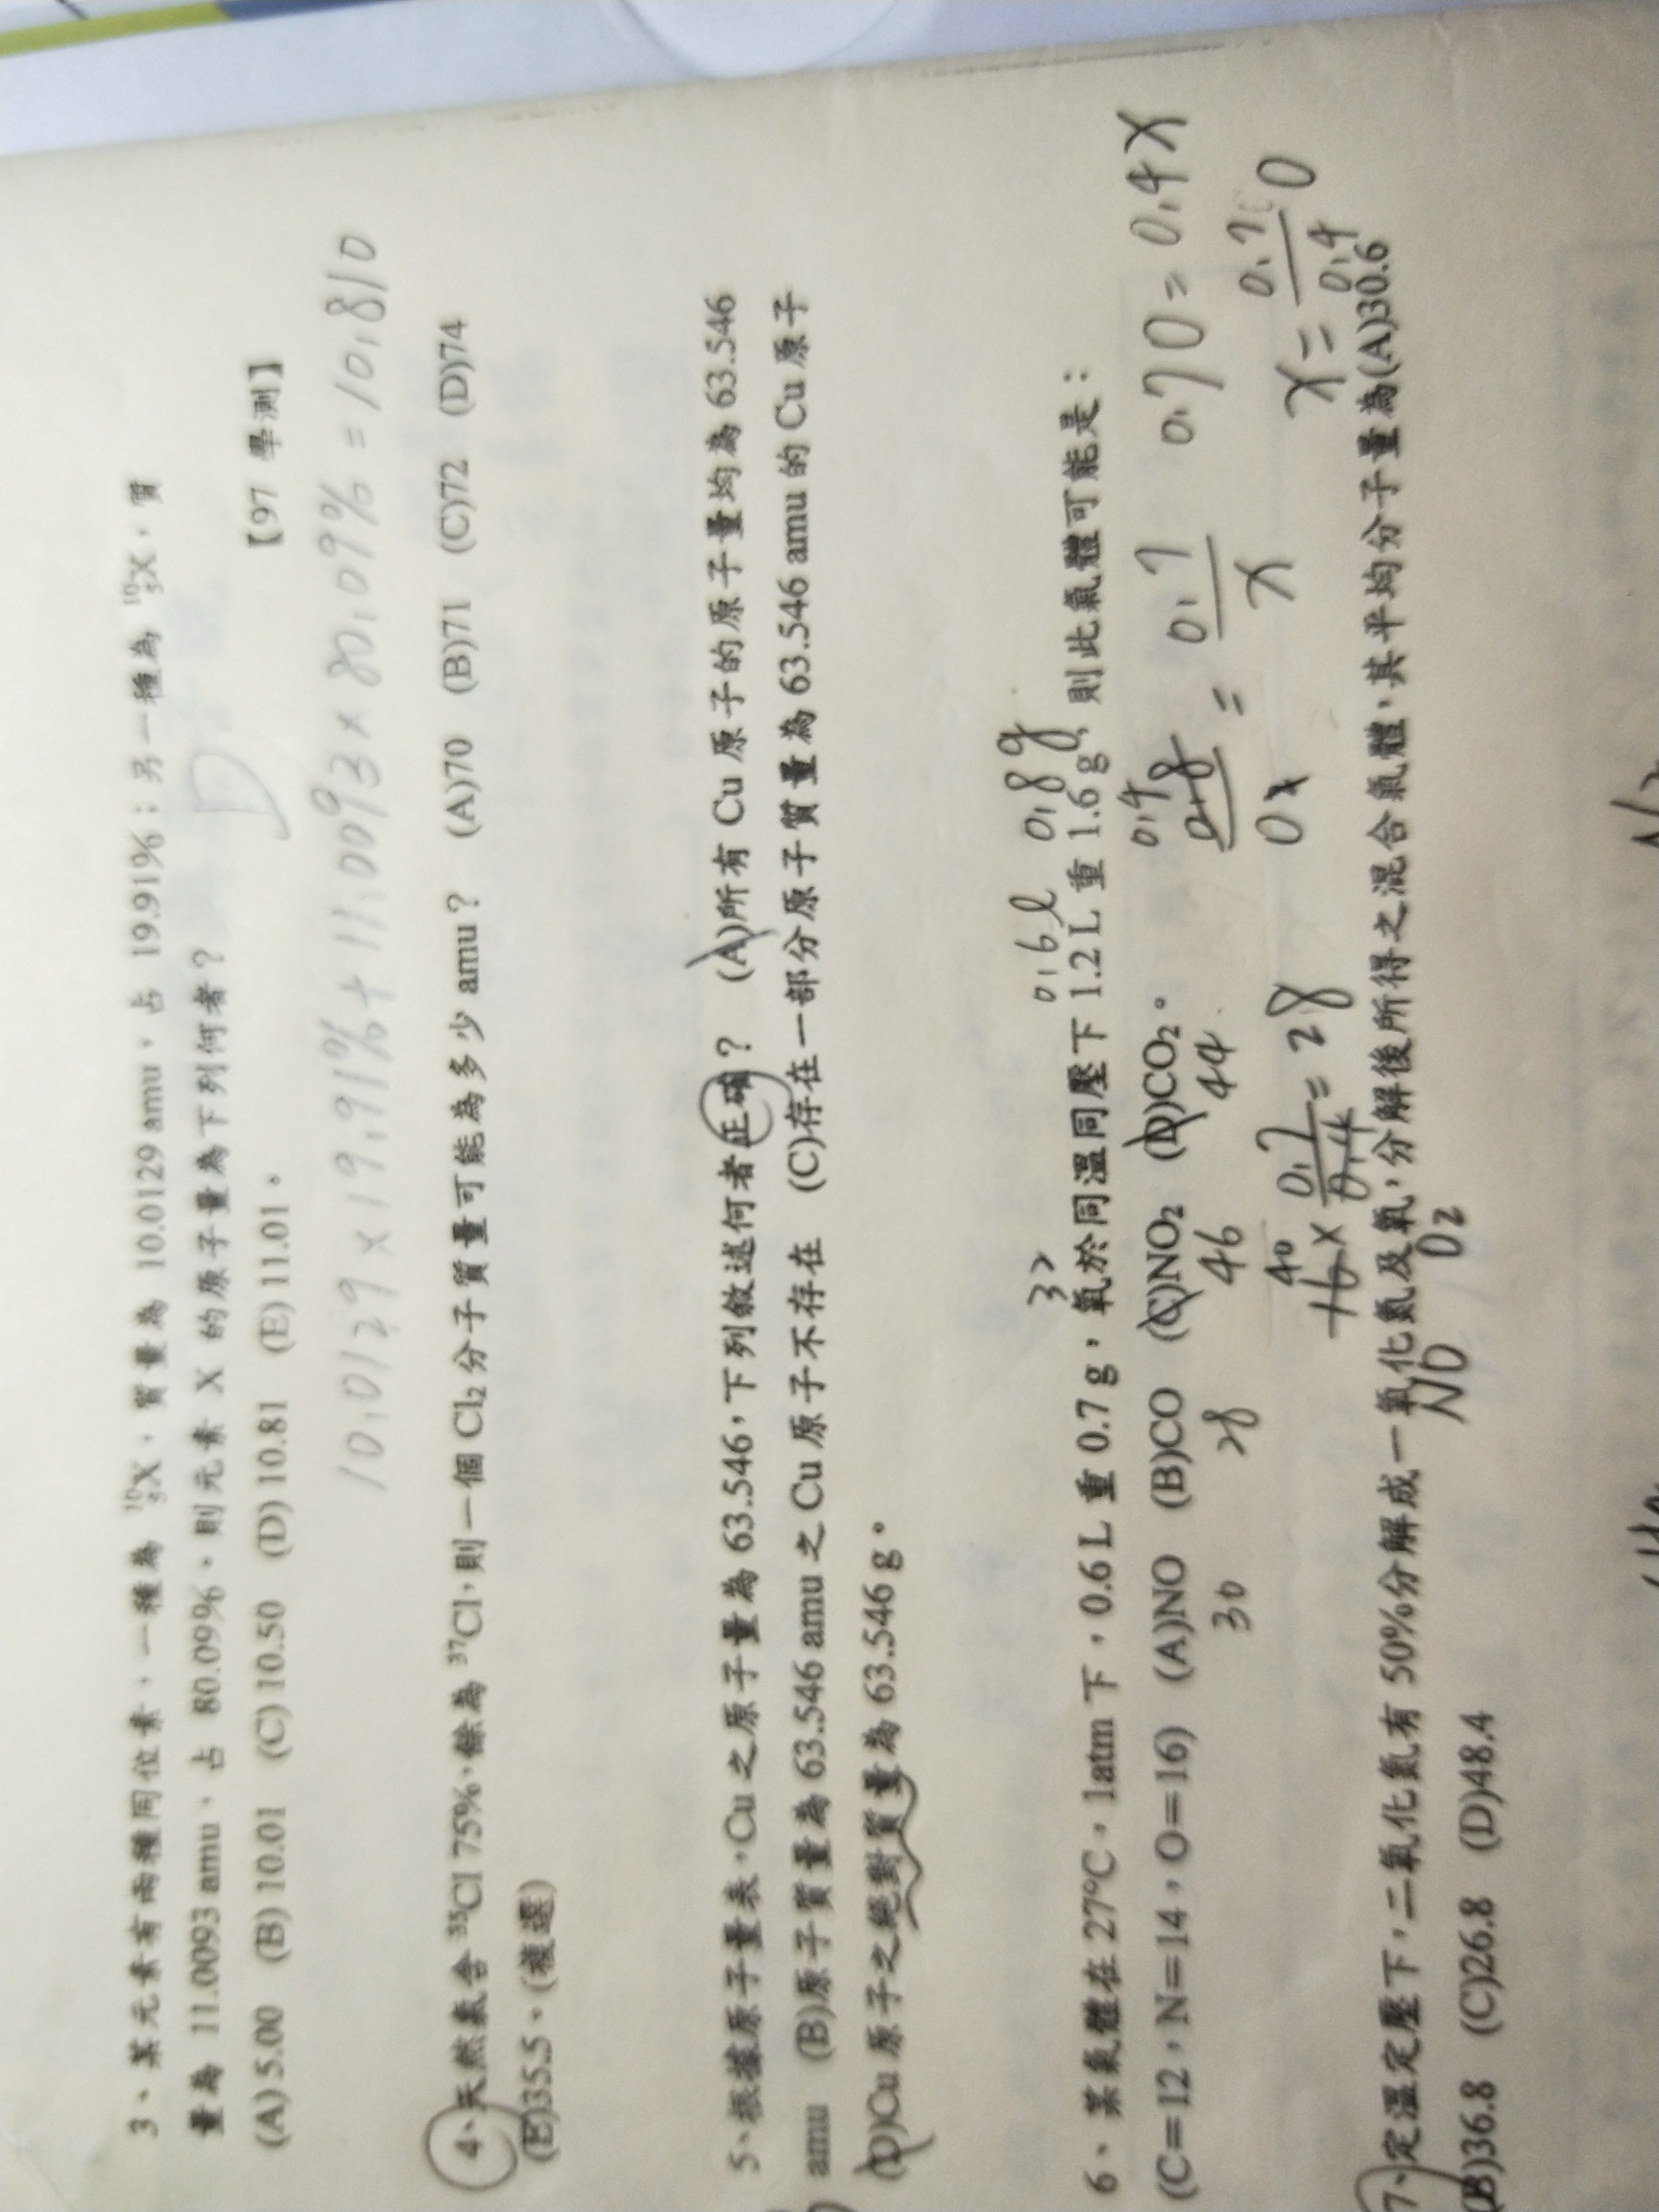 3、某元素有兩種同位素,一種為 ¹⁰₅X,質量為 10.0129 amu,占 19.91%;另一種為 ¹⁰₅X,質
量為 11.0093 amu,占 80.09%,則元素 X 的原子量為下列何者?
D
(A) 5.00 (B) 10.01 (C) 10.50 (D) 10.81 (E) 11.01。 【97 學測】
10.0129 × 19.91% + 11.0093 × 80.09% = 10.810
4、天然氯含 ³⁵Cl 75%,餘為 ³⁷Cl,則一個 Cl₂ 分子質量可能為多少 amu? (A)70 (B)71 (C)72 (D)74
(E)35.5。(複選)
5、根據原子量表,Cu 之原子量為 63.546,下列敘述何者正確? (A)所有 Cu 原子的原子量均為 63.546
amu (B)原子質量為 63.546 amu 之 Cu 原子不存在 (C)存在一部分原子質量為 63.546 amu 的 Cu 原子
(D)Cu 原子之絕對質量為 63.546 g。
32 0.6l 0.8g
6、某氣體在 27°C,1atm 下,0.6 L 重 0.7 g,氧於同溫同壓下 1.2 L 重 1.6 g,則此氣體可能是:
(C=12,N=14,O=16) (A)NO (B)CO (C)NO₂ (D)CO₂。
30 28 46 44
0.7 / x 0.70 = 0.4x
= 28
7、定溫定壓下,二氧化氮有 50%分解成一氧化氮及氧,分解後所得之混合氣體,其平均分子量為(A)30.6
NO O₂
(B)36.8 (C)26.8 (D)48.4